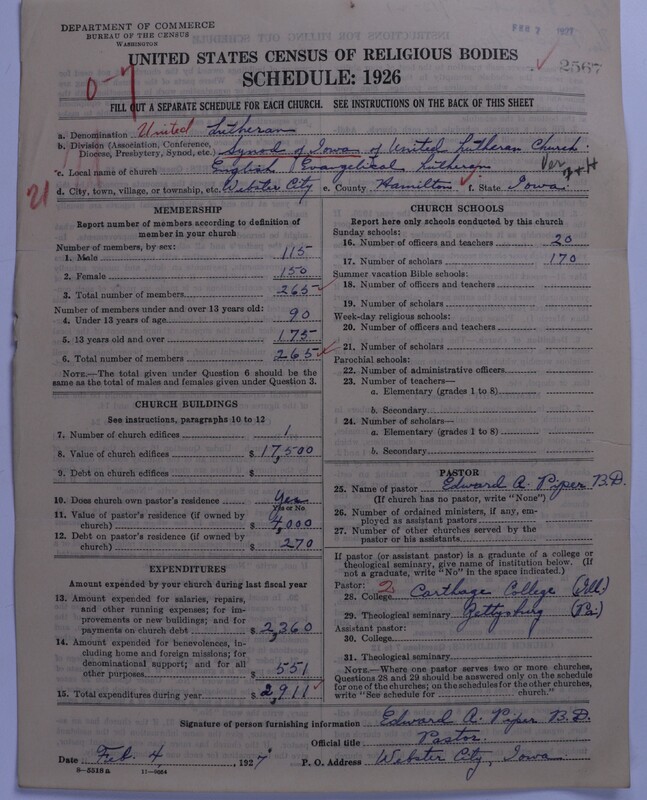 DEPARTMENT OF COMMERCE
BUREAU OF THE CENSUS
WASHINGTON
FEB 7 1927
UNITED STATES CENSUS OF RELIGIOUS BODIES
2567
SCHEDULE: 1926
0-7
FILL OUT A SEPARATE SCHEDULE FOR EACH CHURCH. SEE INSTRUCTIONS ON THE BACK OF THIS SHEET
a. Denomination United Lutheran
b. Division (Association, Conference, Diocese, Presbytery, Synod, etc.) Synod of Iowa of United Lutheran Church.
c. Local name of church English Evangelical Lutheran
Ver
21
d. City, town, village, or township, etc. Webster City e. County Hamilton f. State Iowa.
MEMBERSHIP
Report number of members according to definition of member in your church
Number of members, by sex:
1. Male 115
2. Female 150
3. Total number of members 265
Number of members under and over 13 years old:
4. Under 13 years of age 90
5. 13 years old and over 175
6. Total number of members 265
NOTE.—The total given under Question 6 should be the same as the total of males and females given under Question 3.
CHURCH BUILDINGS
See instructions, paragraphs 10 to 12
7. Number of church edifices 1
8. Value of church edifices $ 17,500
9. Debt on church edifices $
10. Does church own pastor's residence Yes
Yes or No
11. Value of pastor's residence (if owned by church) $ 4,000
12. Debt on pastor's residence (if owned by church) $ 270
EXPENDITURES
Amount expended by your church during last fiscal year
13. Amount expended for salaries, repairs, and other running expenses; for improvements or new buildings; and for payments on church debt $ 2,360
14. Amount expended for benevolences, including home and foreign missions; for denominational support; and for all other purposes $ 551
15. Total expenditures during year $ 2,911
CHURCH SCHOOLS
Report here only schools conducted by this church
Sunday schools:
16. Number of officers and teachers 20
17. Number of scholars 170
Summer vacation Bible schools:
18. Number of officers and teachers
19. Number of scholars
Week-day religious schools:
20. Number of officers and teachers
21. Number of scholars
Parochial schools:
22. Number of administrative officers
23. Number of teachers—
a. Elementary (grades 1 to 8)
b. Secondary
24. Number of scholars—
a. Elementary (grades 1 to 8)
b. Secondary
PASTOR
25. Name of pastor Edward A. Piper B.D.
(If church has no pastor, write "None")
26. Number of ordained ministers, if any, employed as assistant pastors
27. Number of other churches served by the pastor or his assistants
If pastor (or assistant pastor) is a graduate of a college or theological seminary, give name of institution below. (If not a graduate, write "No" in the space indicated.)
Pastor: 2
28. College Carthage College (Ill.)
29. Theological seminary Gettysburg (Pa.)
Assistant pastor:
30. College
31. Theological seminary
NOTE.—Where one pastor serves two or more churches, Questions 28 and 29 should be answered only on the schedule for one of the churches; on the schedules for the other churches, write "See schedule for ........ church."
Signature of person furnishing information Edward A. Piper B.D.
Official title Pastor.
Date Feb. 4, 1927 P. O. Address Webster City, Iowa.
8—5518a 11—9664